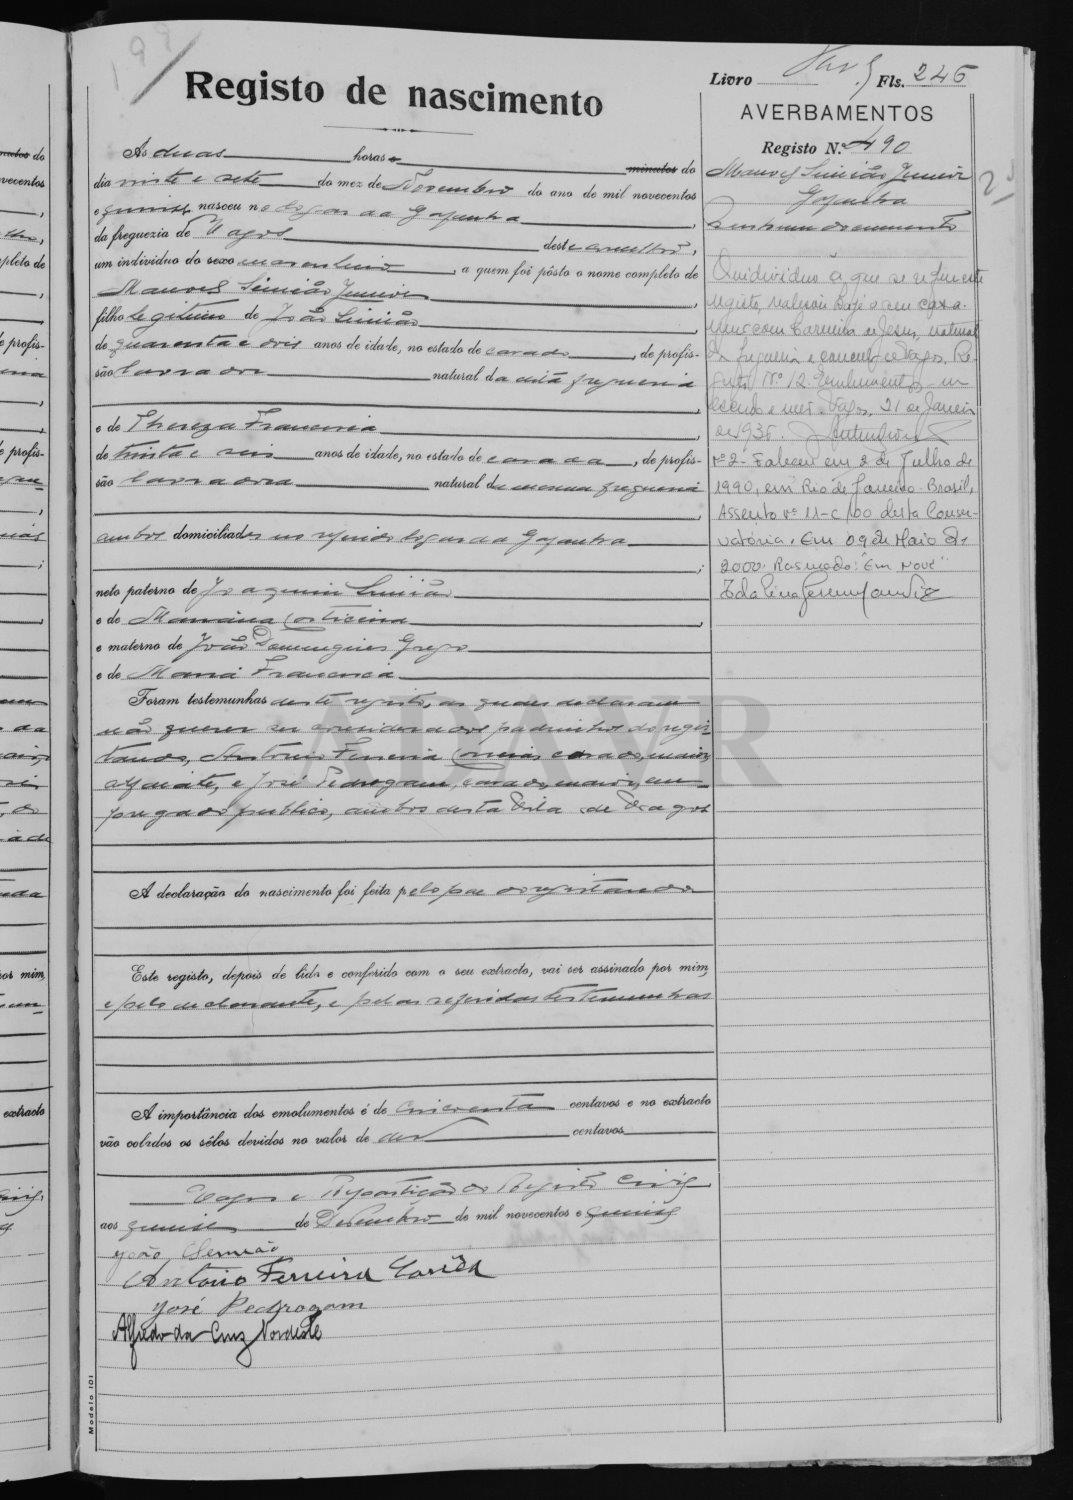 Registo de nascimento
Livro Fls. 246
AVERBAMENTOS
Registo N.º 490
Manoel Simião Junior
Gafanha
Ás duas horas e minutos do
dia vinte e sete do mez de Novembro do ano de mil novecentos
e quinze nasceu no logar da Gafanha,
da freguezia de Vagos deste concelho,
um individuo do sexo masculino, a quem foi pôsto o nome completo de
Manoel Simião Junior,
filho legitimo de João Simião,
de quarenta e dois anos de idade, no estado de casado, de profis-
são lavrador natural da dita freguesia,
e de Thereza Francisca,
de trinta e seis anos de idade, no estado de casada, de profis-
são lavradora natural da mesma freguesia,
ambos domiciliados no referido logar da Gafanha;
neto paterno de Joaquim Simião
e de Mariana,
e materno de João Domingues Grego
e de Maria Francisca
Foram testemunhas deste registo, as quaes declaram
não querer ser considerados padrinhos do regis-
tando, Antonio Ferreira, casado, maior,
alfaiate, e José Pedrogam, casado, maior, em-
pregado publico, ambos desta Vila de Vagos
A declaração do nascimento foi feita pelo pae do registando
Este registo, depois de lido e conferido com o seu extracto, vai ser assinado por mim,
e pelo declarante, e pelas referidas testemunhas
A importância dos emolumentos é de cincoenta centavos e no extracto
vão colados os sêlos devidos no valor de dez centavos
Vagos e Repartição do Registo Civil
aos quinze de Dezembro de mil novecentos e quinze
João Simião
Antonio Ferreira
José Pedrogam
Alfredo da Cruz Nordeste
Modelo 101
O individuo a que se refere este
registo, hoje o seu casa-
mento com de Jesus, natural
da freguesia e concelho de Vagos. Re-
gisto Nº 12.
Vagos, 21 de Janeiro
de 1936.
Nº 2 - Faleceu em 2 de Julho de
1990, em Rio de Janeiro - Brasil,
Assento nº 11-C/00 desta Conser-
vatória. Em 09 de Maio de
2000. Rasurado: "Em Nove"
ADAVR